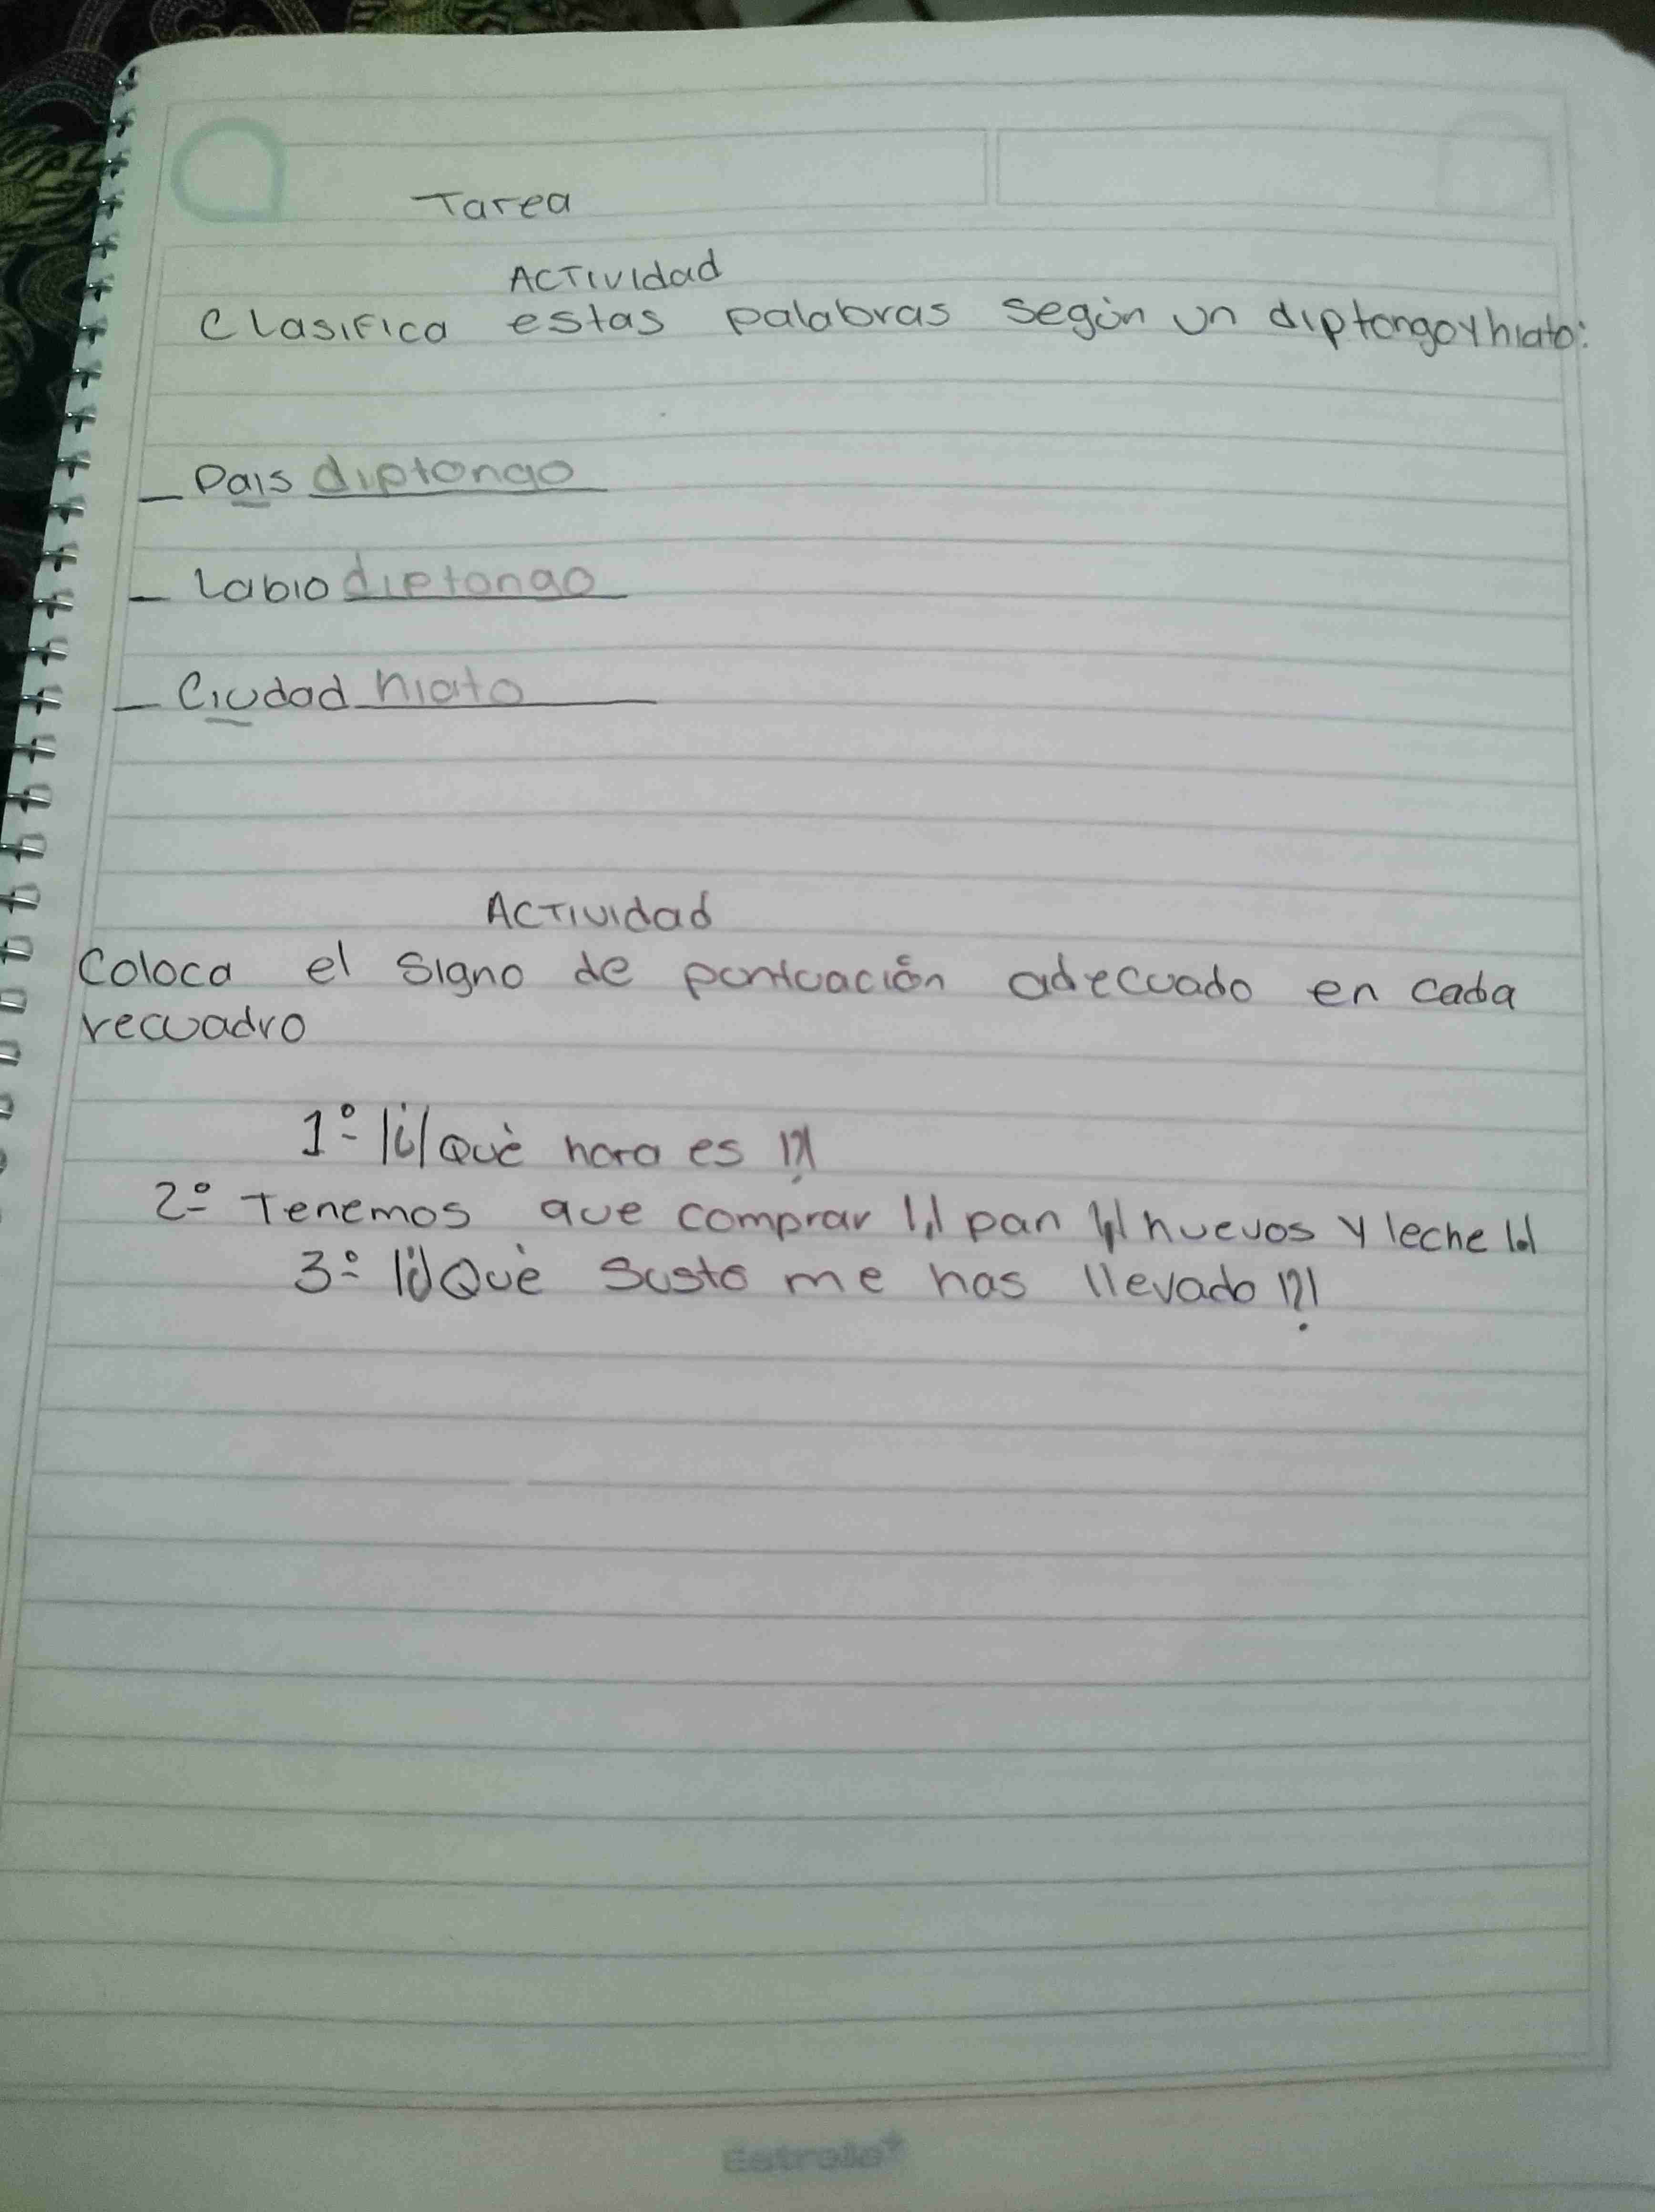 Tarea
Actividad
Clasifica estas palabras según un diptongo y hiato:
_ Pais diptongo
_ Labio diptongo
_ Ciudad hiato
Actividad
Coloca el signo de pontuación adecuado en cada
recuadro
1º- |¿| Qué hora es |?|
2º- Tenemos que comprar |,| pan |,| huevos y leche |.|
3º- |¿| Qué susto me has llevado |?|
Estrella